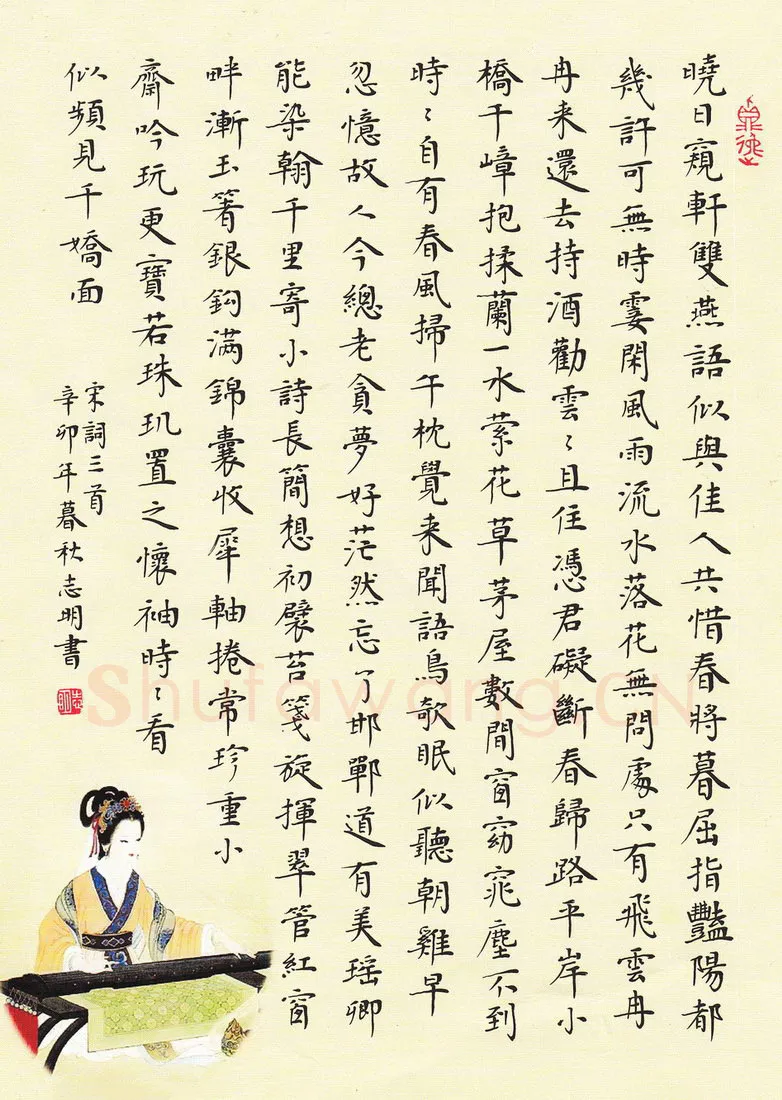 曉日窺軒雙燕語似與佳人共惜春將暮屈指豔陽都
幾許可無時霎閑風雨流水落花無問處只有飛雲冉
冉来還去持酒勸雲〻且住憑君礙斷春歸路平岸小
橋千嶂抱揉蘭一水縈花草茅屋數間窗窈窕塵不到
時〻自有春風掃午枕覺来聞語鳥欹眠似聽朝雞早
忽憶故人今總老貪夢好茫然忘了邯鄲道有美瑶卿
能染翰千里寄小詩長簡想初襞苔箋旋揮翠管紅窗
畔漸玉箸銀鈎满錦囊收犀軸捲常珍重小
齋吟玩更寶若珠玑置之懷袖時〻看
似頻見千嬌面
宋詞三首
辛卯年暮秋志明書
志明
Shufawang.CN